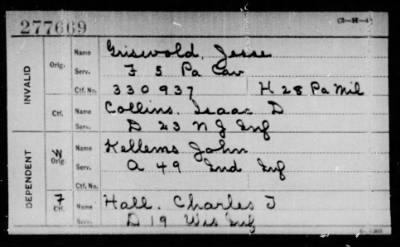 277669
INVALID
Orig.
Name Griswold, Jesse
Serv. F 5 Pa Cav
Ctf. No. 330937 H 28 Pa Mil
Ctf.
Name Collins, Isaac D
Serv. D 23 N J Inf
DEPENDENT
W
Orig.
Name Kellems John
Serv. A 49 Ind Inf
Ctf. No.
F
Ctf.
Name Hall, Charles T
Serv. D 19 Wis Inf